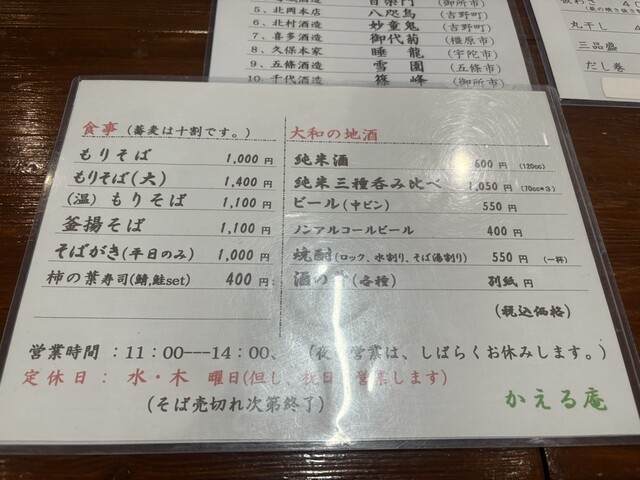 5、北岡本店 八咫烏 (吉野町)
6、北村酒造 妙童鬼 (吉野町)
7、喜多酒造 御代菊 (橿原市)
8、久保本家 睡龍 (宇陀市)
9、五條酒造 (五條市)
10、千代酒造 篠峰 (御所市)
丸干し
三品盛
だし巻
食事 (蕎麦は十割です。)
もりそば 1,000 円
もりそば(大) 1,400 円
(温) もりそば 1,100 円
釜揚そば 1,100 円
そばがき(平日のみ) 1,000 円
柿の葉寿司(鯖,鮭set) 400 円
大和の地酒
純米酒 600 円 (120cc)
純米三種呑み比べ 1,050 円 (70cc*3)
ビール(中ビン) 550 円
ノンアルコールビール 400 円
焼酎(ロック、水割り、そば湯割り) 550 円 (一杯)
酒の (各種) 別紙 円
(税込価格)
営業時間 : 11:00---14:00、 (夜 営業は、しばらくお休みします。)
定休日 : 水・木 曜日(但し、祝日 営業します)
(そば売切れ次第終了)
かえる庵